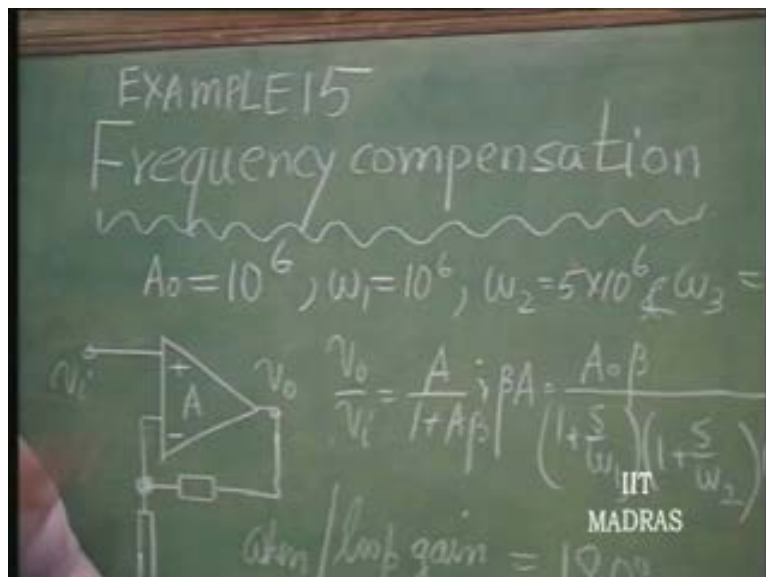 EXAMPLE 15
Frequency compensation
A₀ = 10⁶, ω₁ = 10⁶, ω₂ = 5×10⁶ & ω₃ =
vᵢ
+
A
-
v₀
v₀/vᵢ = A/(1+Aβ) ; βA = A₀β/((1+s/ω₁)(1+s/ω₂)(
loop gain =
IIT
MADRAS